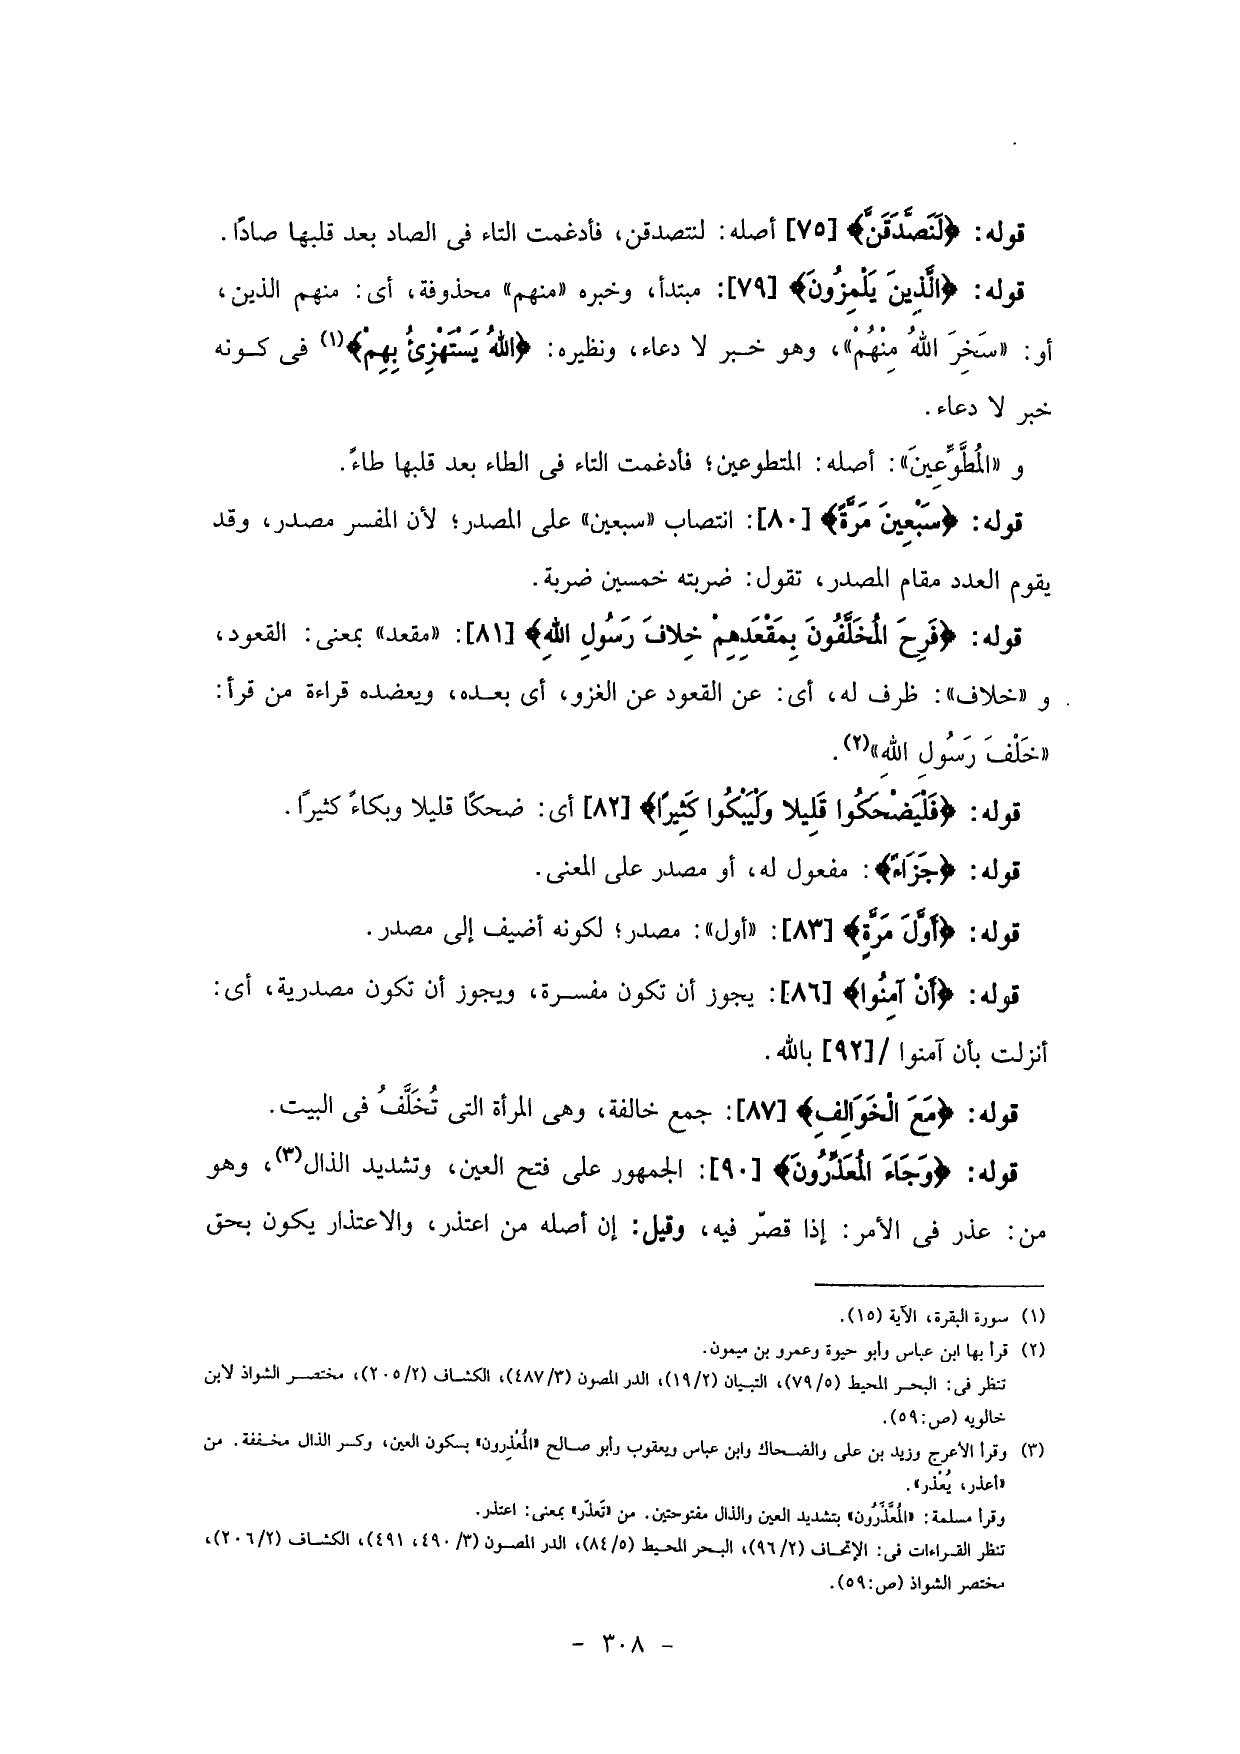 قوله: ﴿لَنَصَّدَّقَنَّ﴾ [٧٥] أصله: لنتصدقن، فأدغمت التاء فى الصاد بعد قلبها صادًا.
قوله: ﴿الَّذِينَ يَلْمِزُونَ﴾ [٧٩]: مبتدأ، وخبره «منهم» محذوفة، أى: منهم الذين،
أو: «سَخِرَ اللهُ مِنْهُمْ»، وهو خبر لا دعاء، ونظيره: ﴿اللهُ يَسْتَهْزِئُ بِهِمْ﴾(١) فى كونه
خبر لا دعاء.
و «المُطَّوِّعِينَ»: أصله: المتطوعين؛ فأدغمت التاء فى الطاء بعد قلبها طاءً.
قوله: ﴿سَبْعِينَ مَرَّةً﴾ [٨٠]: انتصاب «سبعين» على المصدر؛ لأن المفسر مصدر، وقد
يقوم العدد مقام المصدر، تقول: ضربته خمسين ضربة.
قوله: ﴿فَرِحَ المُخَلَّفُونَ بِمَقْعَدِهِمْ خِلافَ رَسُولِ اللهِ﴾ [٨١]: «مقعد» بمعنى: القعود،
و «خلاف»: ظرف له، أى: عن القعود عن الغزو، أى بعده، ويعضده قراءة من قرأ:
«خَلْفَ رَسُولِ اللهِ»(٢).
قوله: ﴿فَلْيَضْحَكُوا قَلِيلا وَلْيَبْكُوا كَثِيرًا﴾ [٨٢] أى: ضحكًا قليلا وبكاءً كثيرًا.
قوله: ﴿جَزَاءً﴾: مفعول له، أو مصدر على المعنى.
قوله: ﴿أَوَّلَ مَرَّةٍ﴾ [٨٣]: «أول»: مصدر؛ لكونه أضيف إلى مصدر.
قوله: ﴿أَنْ آمَنُوا﴾ [٨٦]: يجوز أن تكون مفسرة، ويجوز أن تكون مصدرية، أى:
أنزلت بأن آمنوا /[٩٢] بالله.
قوله: ﴿مَعَ الْخَوَالِفِ﴾ [٨٧]: جمع خالفة، وهى المرأة التى تُخَلَّفُ فى البيت.
قوله: ﴿وَجَاءَ المُعَذِّرُونَ﴾ [٩٠]: الجمهور على فتح العين، وتشديد الذال(٣)، وهو
من: عذر فى الأمر: إذا قصّر فيه، وقيل: إن أصله من اعتذر، والاعتذار يكون بحق
(١) سورة البقرة، الآية (١٥).
(٢) قرأ بها ابن عباس وأبو حيوة وعمرو بن ميمون.
تنظر فى: البحر المحيط (٧٩/٥)، التبيان (١٩/٢)، الدر المصون (٤٨٧/٣)، الكشاف (٢٠٥/٢)، مختصر الشواذ لابن
خالويه (ص:٥٩).
(٣) وقرأ الأعرج وزيد بن على والضحاك وابن عباس ويعقوب وأبو صالح «المُعْذِرون» بسكون العين، وكسر الذال مخففة. من
«أعذر، يُعْذر».
وقرأ مسلمة: «المُعَّذَّرُون» بتشديد العين والذال مفتوحتين. من «تَعذّر» بمعنى: اعتذر.
تنظر القراءات فى: الإتحاف (٩٦/٢)، البحر المحيط (٨٤/٥)، الدر المصون (٤٩٠/٣، ٤٩١)، الكشاف (٢٠٦/٢)،
مختصر الشواذ (ص:٥٩).
- ٣٠٨ -